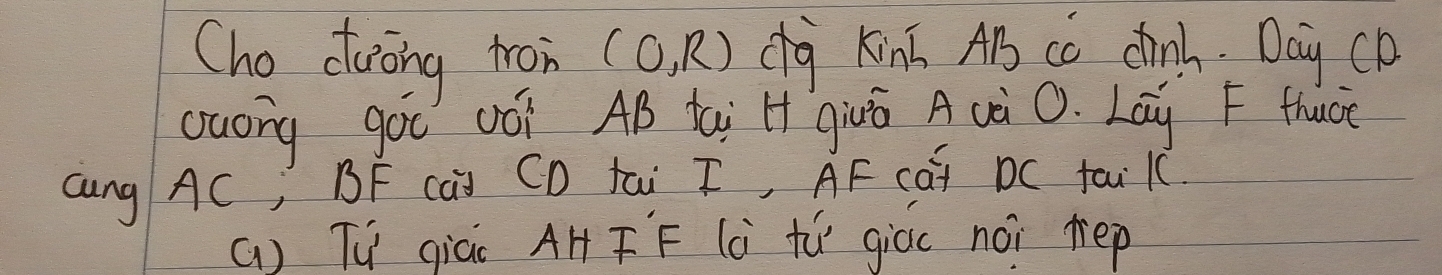 Cho đường tròn (O,R) đg kính AB cố định. Dây CD
vuông góc với AB tại H giữa A và O. Lấy F thuộc
cung AC, BF cắt CD tại I, AF cắt DC tại K.
a) Tứ giác AHIF là tứ giác nội tiếp